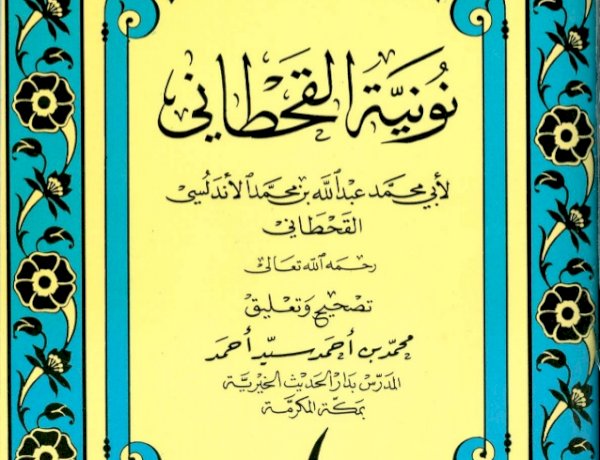 نُونيَّة القَحْطَاني
لأبي محمَّد عبد اللَّه بن محمَّد الأندَلُسِي
القَحْطَاني
رحمه اللّه تعالى
تصْحيح وَتعْليق
محمَّد بن أحمَد سيّد أحمَد
المدَرّس بدَار الحَديث الخَيريَّة
بمكَّة المكرمَّة